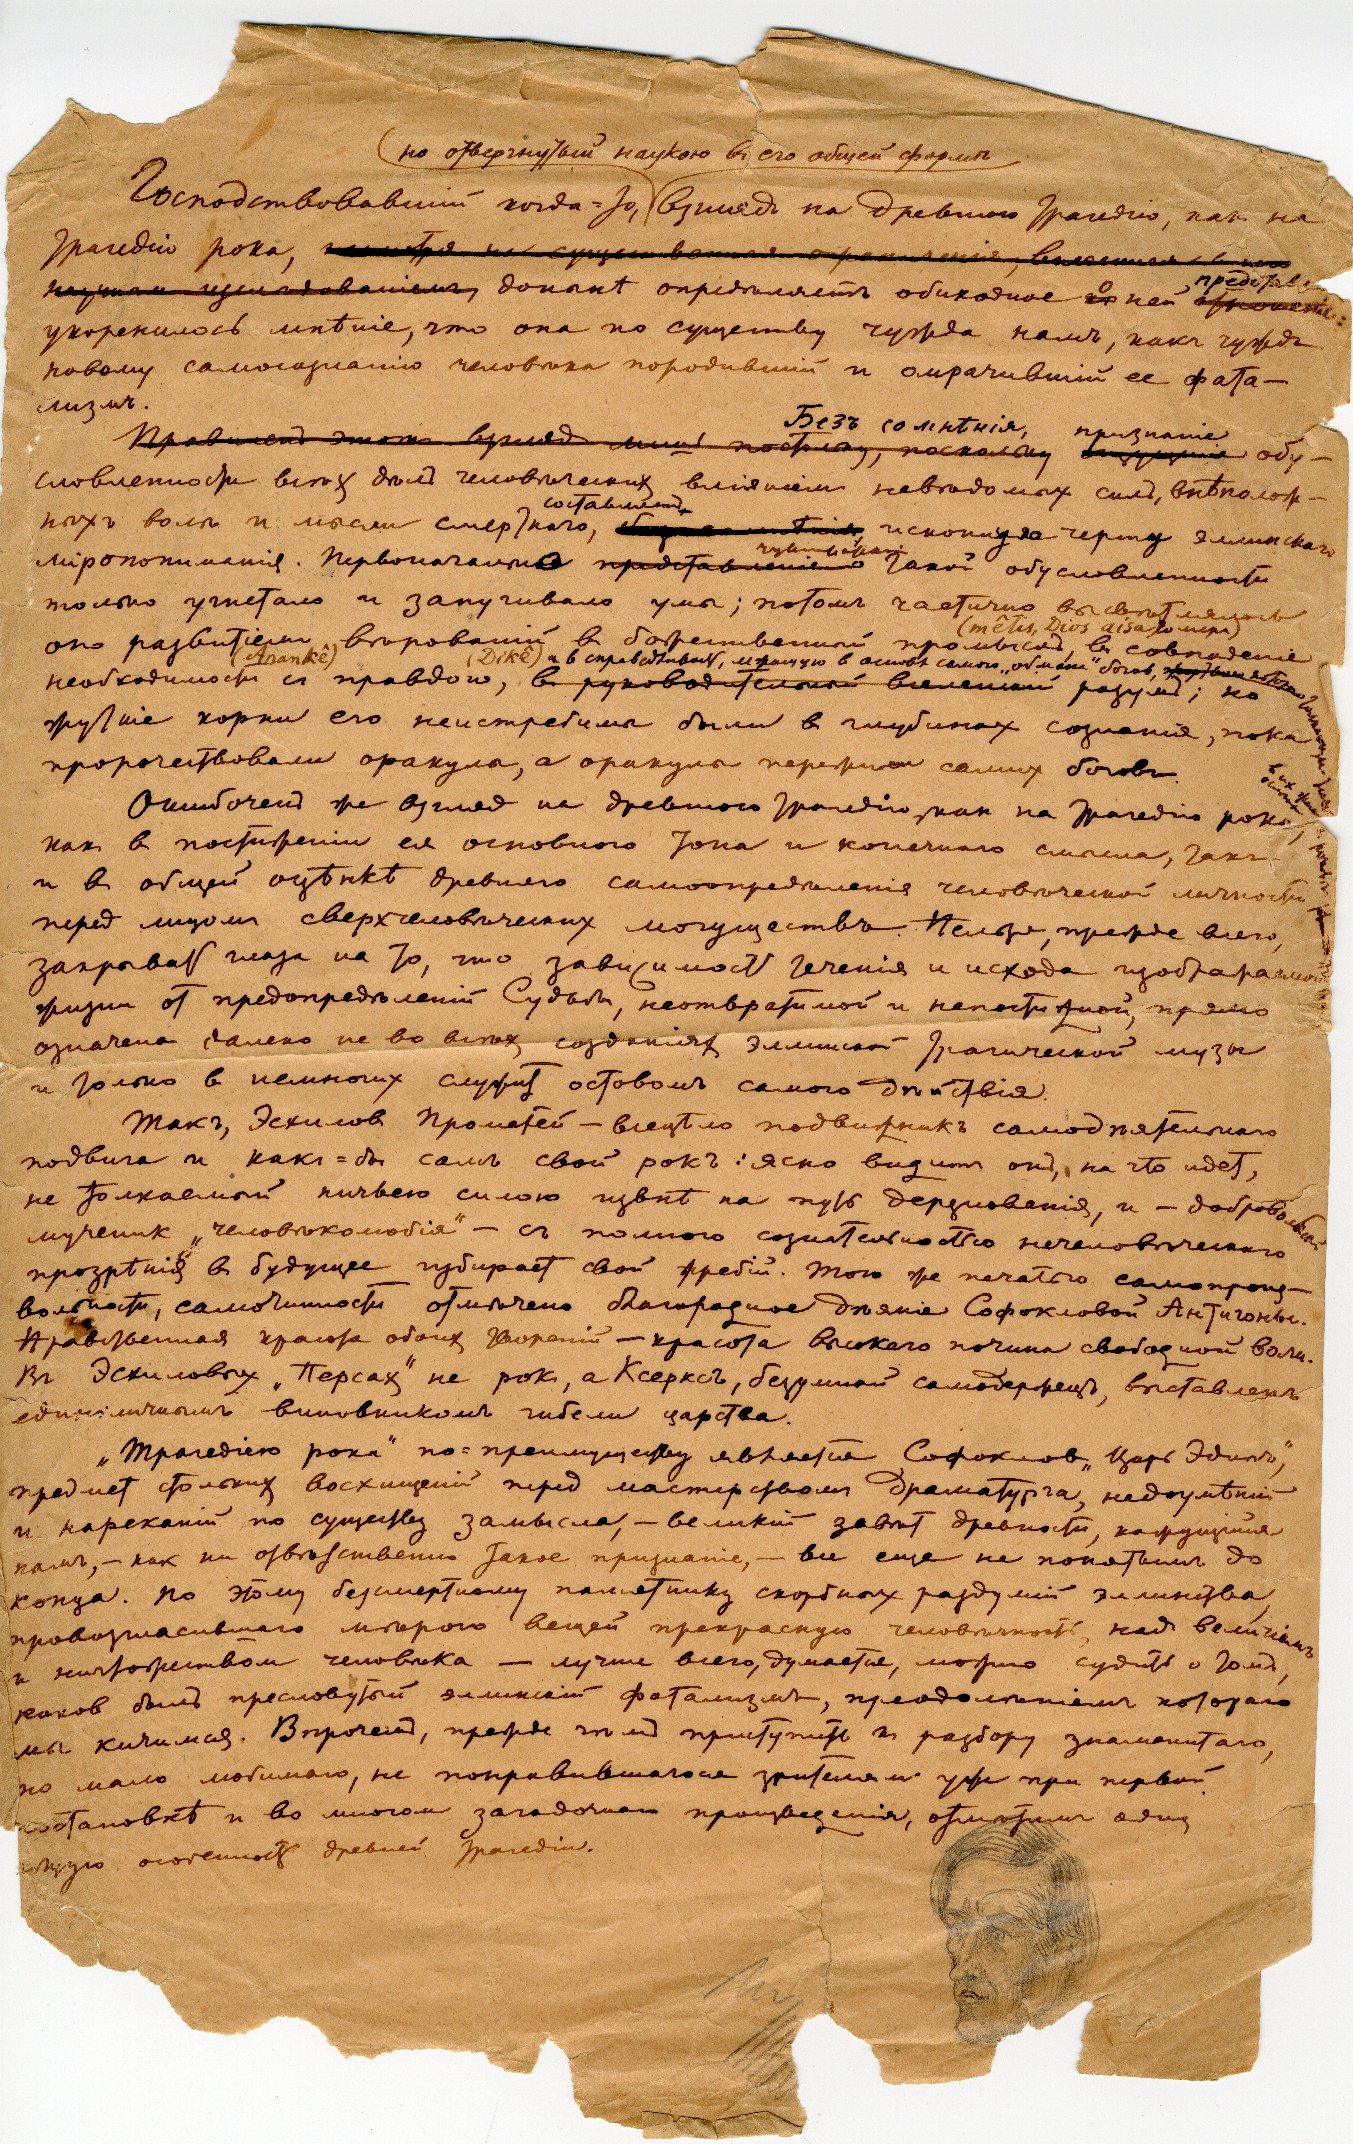 но отвергнутый наукою въ его общей формѣ
Господствовавшій когда-то, взглядъ на древнюю трагедію, какъ на
трагедію рока, несмотря на существенныя ограниченія, внесенныя въ него
научнымъ изслѣдованіемъ, донынѣ опредѣляетъ обиходное о ней представленіе:
укоренилось мнѣніе, что она по существу чужда намъ, какъ чуждъ
новому самосознанію человѣка породившій и омрачившій ее фата-
лизмъ.
Правиленъ этотъ взглядъ лишь постольку, поскольку
Безъ сомнѣнія, признаніе обу-
словленности всѣхъ дѣлъ человѣческихъ вліяніемъ невѣдомыхъ силъ, внѣполож-
ныхъ волѣ и мысли смертнаго, составляетъ исконную черту эллинскаго
міропониманія. Первоначально такой обусловленности
только угнетало и запугивало умы; потомъ частично высвѣтлялось
оно развитіемъ вѣрованій въ божественный промыслъ (mêtis, Dios aisa Гомера), въ совпаденіе
необходимости (Anankê) съ правдою (Dikê), и въ справедливый, лежащую въ основѣ самого „обмана“ боговъ,
въ руководительный вселенскій разумъ; но
жуткіе корни его неистребимы были въ глубинахъ сознанія, пока
пророчествовали оракулы, а оракулы пережили самихъ боговъ.
Ошибоченъ же взглядъ на древнюю трагедію, какъ на трагедію рока,
какъ въ постиженіи ея основного тона и конечнаго смысла, такъ
и въ общей оцѣнкѣ древняго самоопредѣленія человѣческой личности
передъ лицомъ сверхчеловѣческихъ могуществъ. Нельзя, прежде всего,
закрывать глаза на то, что зависимость теченія и исхода изображаемой
жизни отъ предопредѣленій Судьбы, неотвратимой и непостижной, прямо
означена далеко не во всѣхъ созданіяхъ эллинской трагической музы
и только въ немногихъ служитъ остовомъ самого дѣйствія.
Такъ, Эсхиловъ Прометей – всецѣло подвижникъ самодѣятельнаго
подвига и какъ-бы самъ свой рокъ: ясно видитъ онъ, на что идетъ,
не толкаемый ничьею силою извнѣ на путь дерзновенія, и – добровольный
мученикъ „человѣколюбія“ – съ полною сознательностью нечеловѣческаго
прозрѣнія въ будущее избираетъ свой жребій. Тою же печатью самопроиз-
вольности, самочинности отмѣчено благородное дѣяніе Софокловой Антигоны.
Нравственная красота обоихъ твореній – красота высокаго почина свободной воли.
Въ Эсхиловыхъ „Персахъ“ не рокъ, а Ксерксъ, безумный самодержецъ, выставленъ
единоличнымъ виновникомъ гибели царства.
„Трагедіею рока“ по-преимуществу является Софокловъ „Царь Эдипъ“,
предметъ столькихъ восхищеній передъ мастерствомъ драматурга, недоумѣній
и нареканій по существу замысла, – великій завѣтъ древности, кажущійся
намъ, – какъ ни отвѣтственно такое признаніе, – все еще не понятымъ до
конца. По этому безсмертному памятнику скорбныхъ раздумій эллинства,
провозгласившаго мѣрою вещей прекрасную человѣчность, надъ величіемъ
и ничтожествомъ человѣка – лучше всего, думается, можно судить о томъ,
каковъ былъ пресловутый эллинскій фатализмъ, преодолѣніемъ котораго
мы кичимся. Впрочемъ, прежде чѣмъ приступить къ разбору знаменитаго,
но мало любимаго, не понравившагося зрителямъ уже при первой
постановкѣ и во многомъ загадочнаго произведенія, отмѣтимъ одну
общую особенность древней трагедіи.